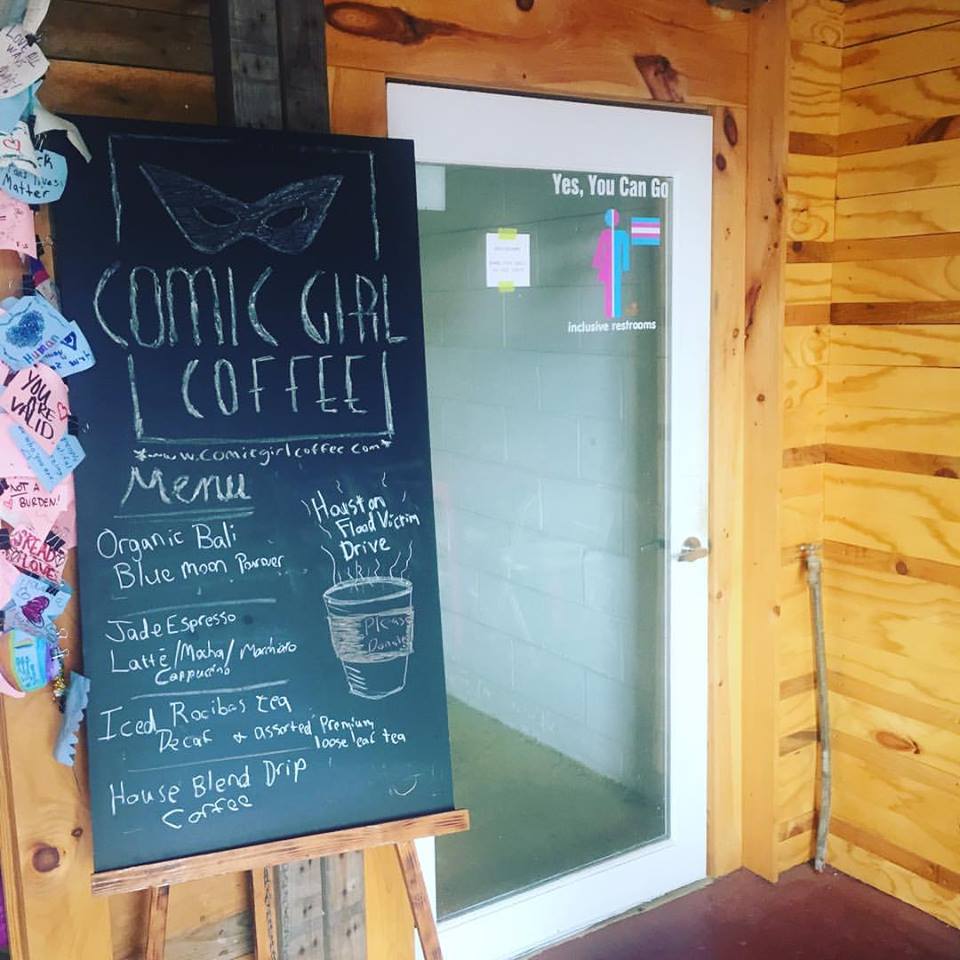 COMIC GIRL
COFFEE
*www.comicgirlcoffee.com*
Menu
Organic Bali
Blue Moon Pourover
Jade Espresso
Latté/Mocha/Macchiato
Cappuccino
Iced Rooibos tea
Decaf & assorted Premium
loose leaf tea
House Blend Drip
Coffee
Houston
Flood Victim
Drive
Please
Donate
Yes, You Can Go
inclusive restrooms
LOVE ALL
WAYS
Matter
Human
YOU
ARE
VALID
NOT A
BURDEN!
SPREAD
LOVE